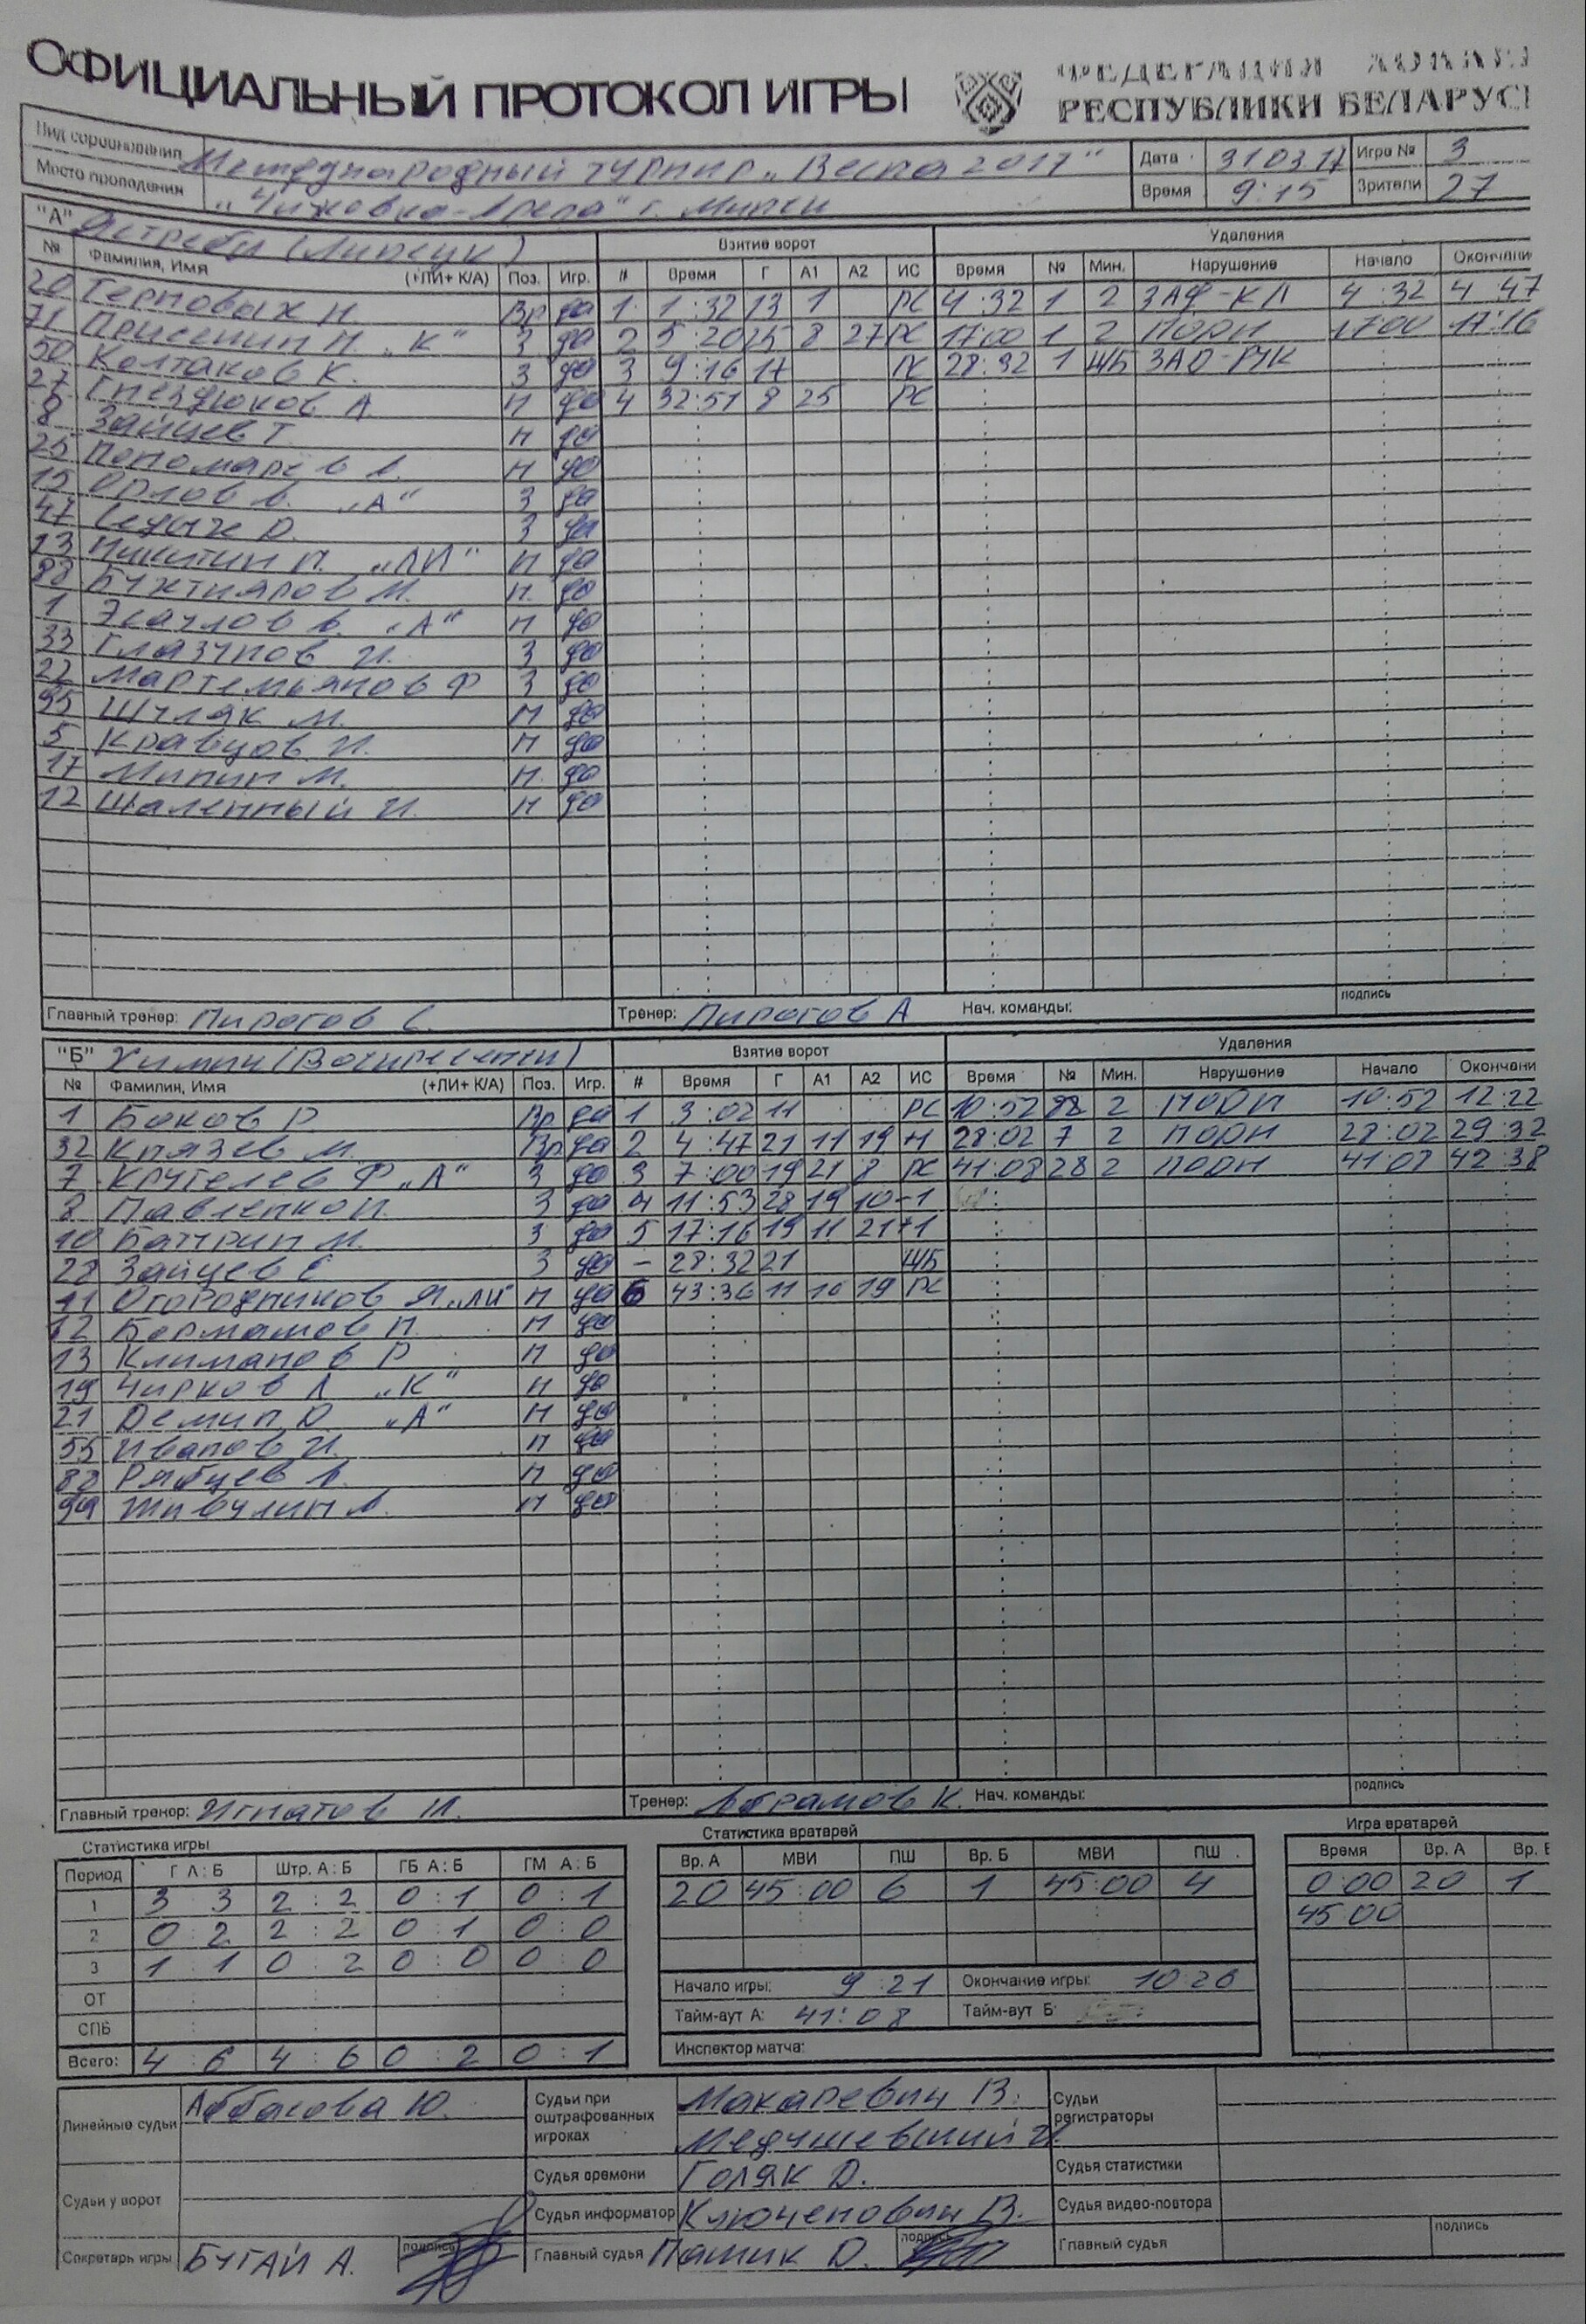 ОФИЦИАЛЬНЫЙ ПРОТОКОЛ ИГРЫ
РЕСПУБЛИКИ БЕЛАРУСЬ
Вид соревнования Международный турнир „Весна 2017" Дата 31.03.17 Игра № 3
Место проведения „Чижовка-Арена" г. Минск Время 9:15 Зрители 27
"А" Ястребы (Липецк) Взятие ворот Удаления
№ Фамилия, Имя (+ЛИ+ К/А) Поз. Игр. # Время Г А1 А2 ИС Время № Мин. Нарушение Начало Окончани
20 Терновых Н. Вр да 1 1:32 13 1 РС 4:32 1 2 ЗАФ-КЛ 4:32 4:47
71 „К" З да 2 5:20 25 8 27 РС 17:00 1 2 ПОДН 17:00 17:16
50 Колтаков К. З да 3 9:16 17 РС 28:32 1 ШБ
27 Гнездюков А Н да 4 32:51 8 25 РС
8 Зайцев Т. Н да
25 Пономарев А. Н да
15 Орлов А. „А" З да
47 Седых D. З да
13 Никитин П. „ЛИ" Н да
88 Бухтияров М. Н. да
1 Эсаулов А. „А" Н да
33 Глазунов И. З да
22 Мартемьянов Ф З да
95 Шуляк М. Н да
5 Кравцов И. Н да
17 Минин М. Н. да
12 Шаленный И. Н да
Главный тренер: Пирогов С. Тренер: Пирогов А Нач. команды: подпись
"Б" Химик (Воскресенск) Взятие ворот Удаления
№ Фамилия, Имя (+ЛИ+ К/А) Поз. Игр. # Время Г А1 А2 ИС Время № Мин. Нарушение Начало Окончани
1 Боков Р Вр да 1 3:02 11 РС 10:52 88 2 ПОДН 10:52 12:22
32 Князев М. Вр да 2 4:47 21 11 19 28:02 7 2 ПОДН 28:02 29:32
7 Кругелев Ф „А" З да 3 7:00 19 21 8 РС 41:08 28 2 ПОДН 41:08 42:38
8 Павленко И. З да 4 11:53 28 19 10 -1
10 Батрин М. З да 5 17:16 19 11 21 +1
28 Зайцев Е З да – 28:32 21 ШБ
11 Огородников Я „ЛИ" Н да 6 43:36 11 10 19 РС
12 Н да
13 Климанов Р Н да
19 Чирков А „К" Н да
21 Демин D „А" Н да
55 Иванов И. Н да
88 Рябцев А. Н да
99 Живулин А. Н да
Главный тренер: Игнатов И. Тренер: Абрамов К. Нач. команды: подпись
Статистика игры Статистика вратарей Игра вратарей
Период Г А : Б Штр. А : Б ГБ А : Б ГМ А : Б Вр. А МВИ ПШ Вр. Б МВИ ПШ Время Вр. А Вр. Б
1 3 3 2 : 2 0 : 1 0 : 1 20 45:00 6 1 45:00 4 0:00 20 1
2 0 : 2 2 : 2 0 : 1 0 : 0 45:00
3 1 : 1 0 : 2 0 : 0 0 : 0
ОТ Начало игры: 9:21 Окончание игры: 10:26
СПБ Тайм-аут А: 41:08 Тайм-аут Б:
Всего: 4 : 6 4 : 6 0 : 2 0 : 1 Инспектор матча:
Линейные судьи Аббасова Ю. Судьи при оштрафованных игроках Макаревич В. Судьи регистраторы
Медушевский И.
Судья времени Голяк D. Судья статистики
Судьи у ворот Судья информатор Ключенович В. Судья видео-повтора
Секретарь игры БУГАЙ А. подпись Главный судья Пашик D. подпись Главный судья подпись